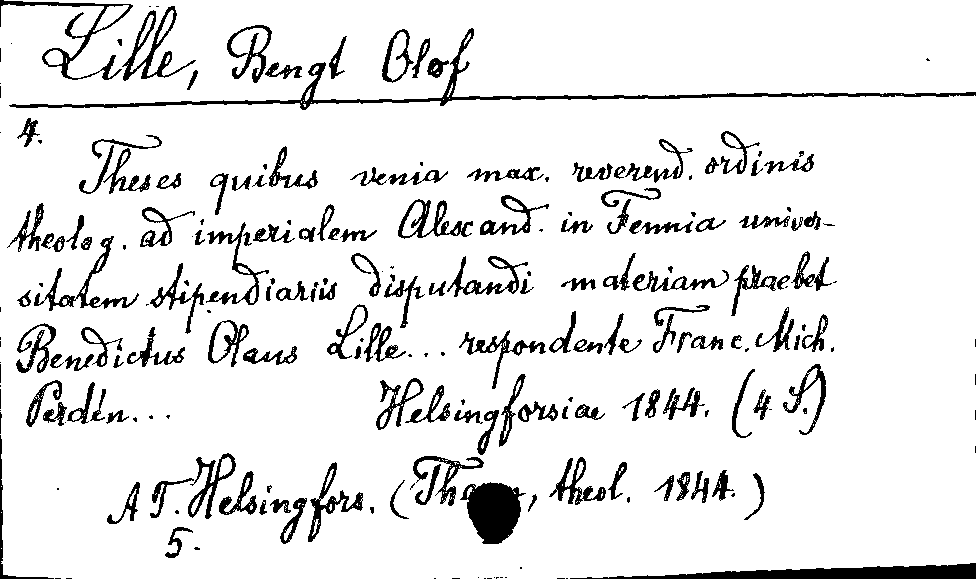 Lille, Bengt Olof
4.
Theses quibus venia max. reverend. ordinis
theolog. ad imperialem Alexand. in Fennia univer-
sitatem stipendiariis disputandi materiam praebet
Benedictus Olaus Lille... respondente Franc. Mich.
Perdén... Helsingforsiae 1844. (4 S.)
A T. Helsingfors. ( , theol. 1844.)
5.